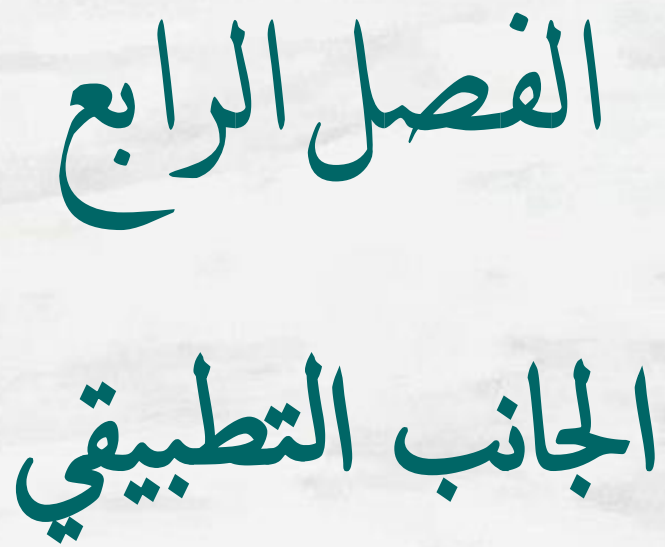 الفصل الرابع
الجانب التطبيقي